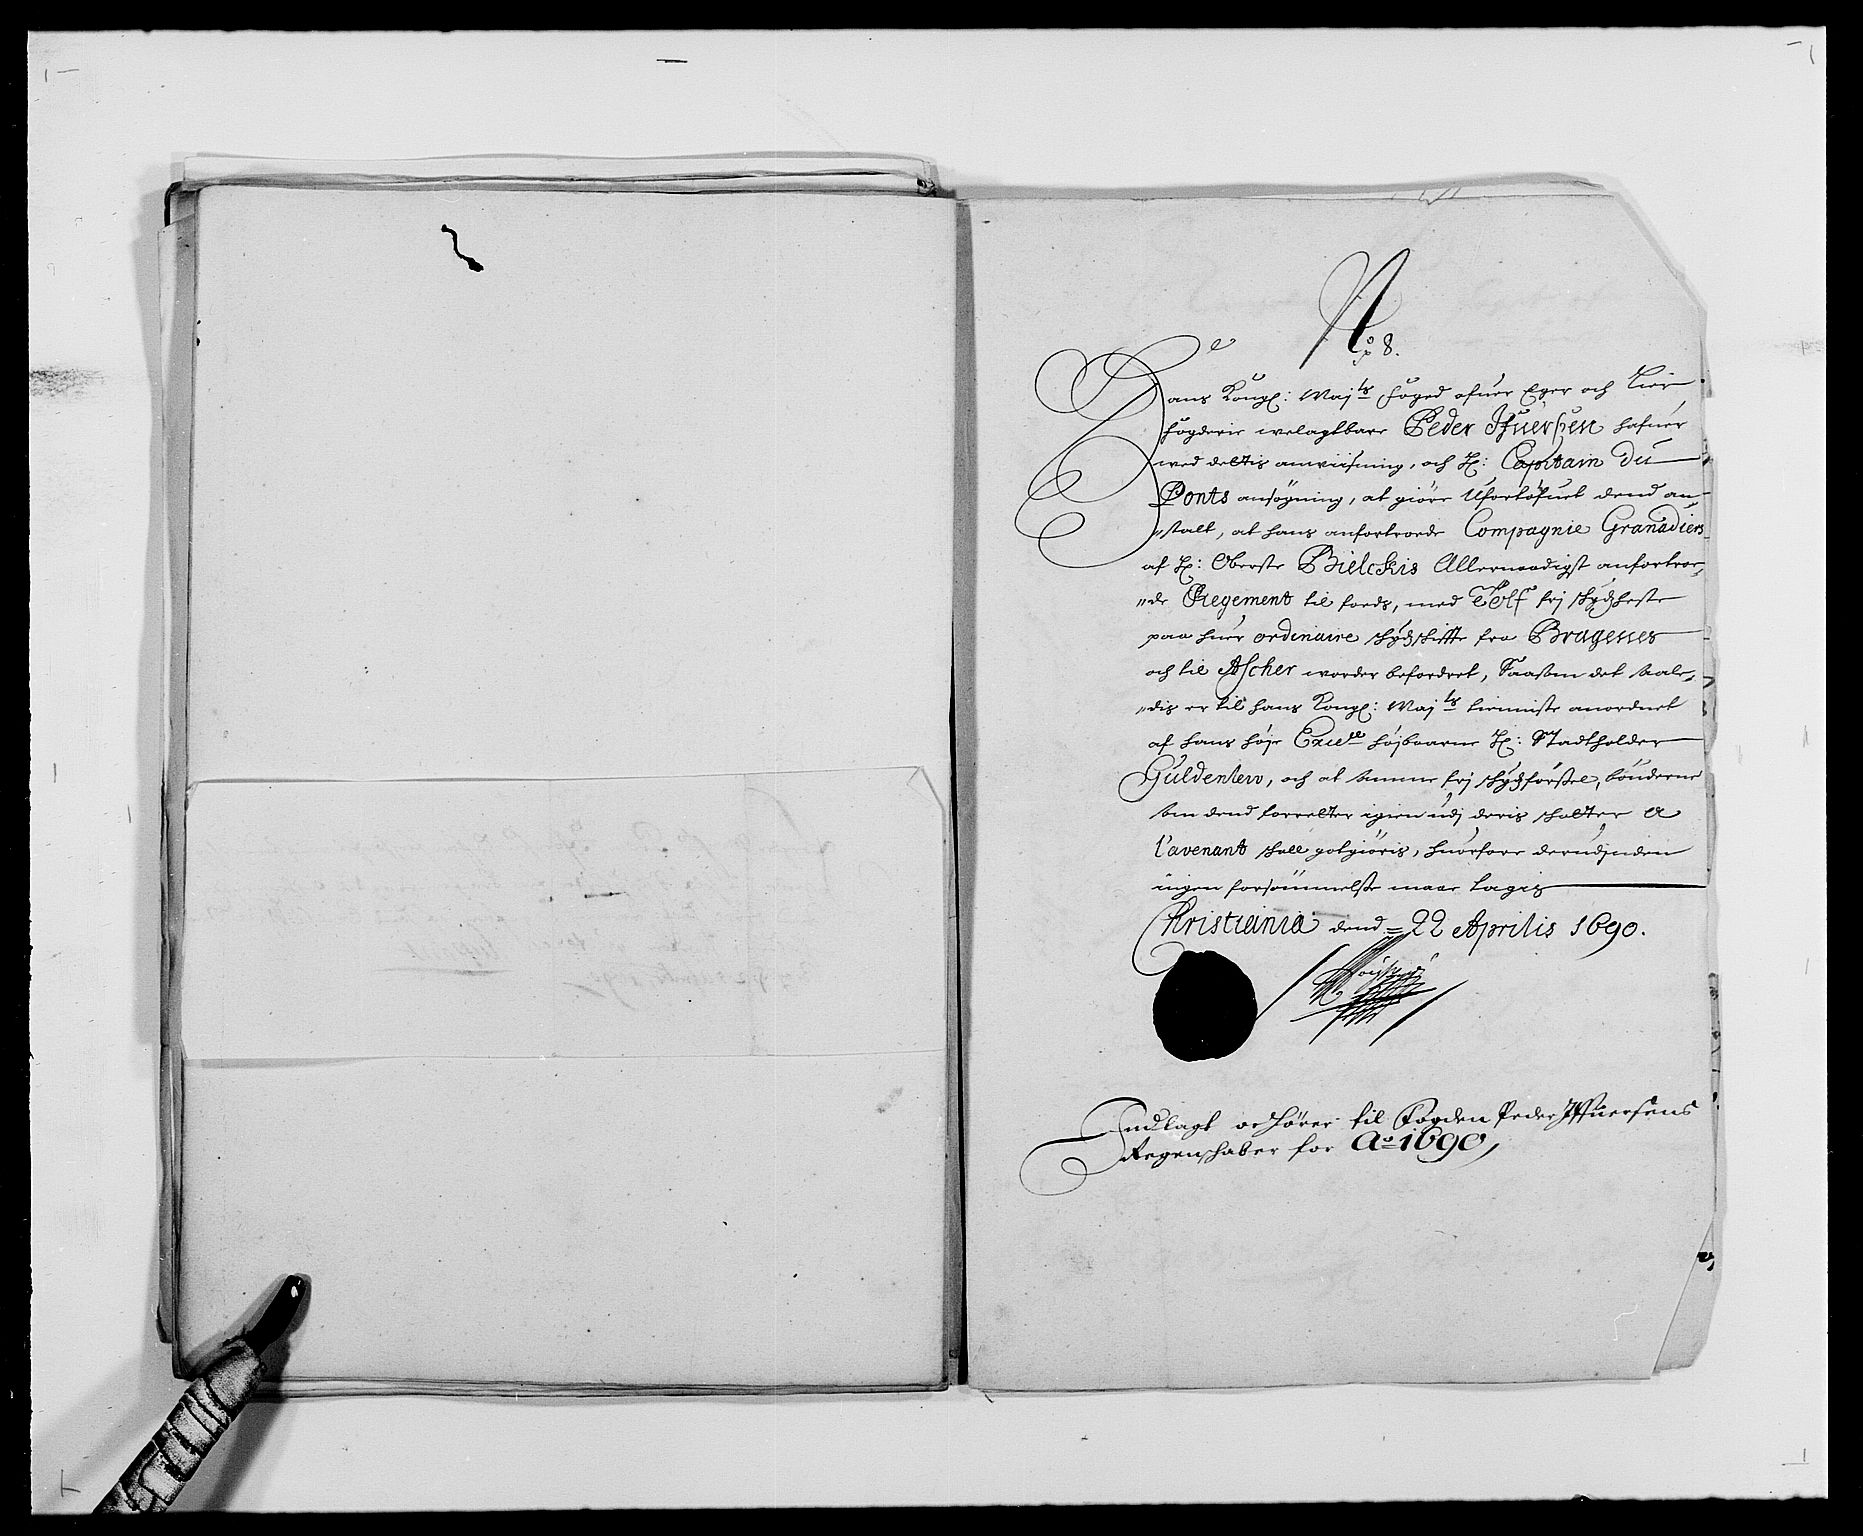 No 8.
Hans Kongl: Maj.ts foged ofuer Eger och Lier
fogderie welagtbare Peder Ifuersen hafuer
wed dettis anwiisning, och H: Capitain du
Ponts ansøgning, at giøre Ufortøfuet dend an-
„stalt, at hans anfortroede Compagnie Granadiers
af H: Oberste Bielckis Allernaadigst anfortroe-
„de Regement til foeds, med Tolf frj skydsheste
paa huer ordinaire skydsskiffte fra Bragenes
och til Ascher worder befordret, Saasom det saale-
„dis er til hans Kongl: Maj.ts tienniste anordnet
af hans høje Excellce højbaarne H: Stadtholder
Güldenlew, och at samme frj skydsførssel, bønderne
som dend forretter igien udj deris skatter a
l'avenant skall gotgiøris, huorfore derudjnden
ingen forsømmelse maae tagis
Christiania dend = 22 Aprilis 1690.
Indlagt och hører til Fogden Peder Ifuersens
Regenskaber for Ao 1690,